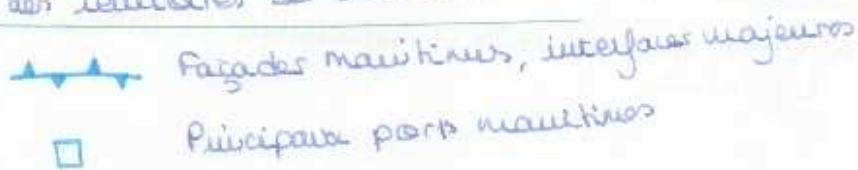 des territoires
Façades maritimes, interfaces majeures
Principaux ports maritimes